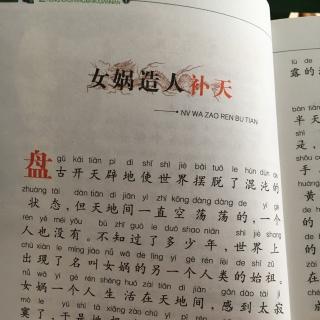 女娲造人补天
NV WA ZAO REN BU TIAN
gǔ kāi tiān pì dì shǐ shì jiè bǎi tuō le hùn dùn de
盘古开天辟地使世界摆脱了混沌的
zhuàng tài dàn tiān dì jiān yì zhí kōng dàng dàng de yí gè
状态，但天地间一直空荡荡的，一个
rén yě méi yǒu bù zhī guò le duō shao nián shì jiè shàng
人也没有。不知过了多少年，世界上
chū xiàn le míng jiào nǚ wā de lìng yí gè rén lèi de shǐ zǔ
出现了名叫女娲的另一个人类的始祖。
nǚ wā yí gè rén shēng huó zài tiān dì jiān gǎn dào tài jì
女娲一个人生活在天地间，感到太寂
mò le yú shì tā
寞了，于是她
lù de
露的
bàn tiān
半天
shì
是，
shǒu
手
huáng
黄
de
的